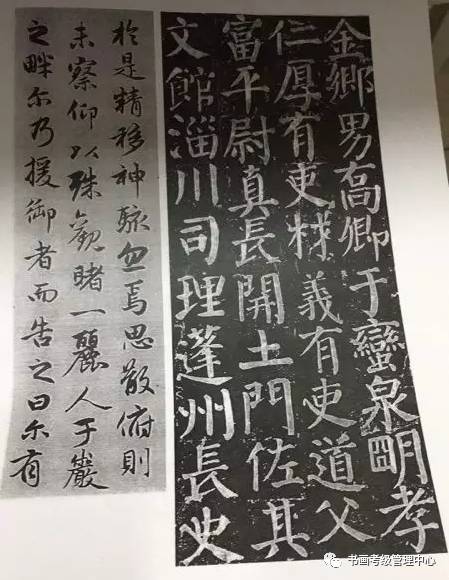 金鄉男喬卿于蠻泉明孝
仁厚有吏材義有吏道父
富平尉真長開土門佐其
文館淄川司理蓬州長史
於是精移神駭忽焉思散俯則
未察仰以殊觀睹一麗人于巖
之畔尔乃援御者而告之曰尔有
书画考级管理中心